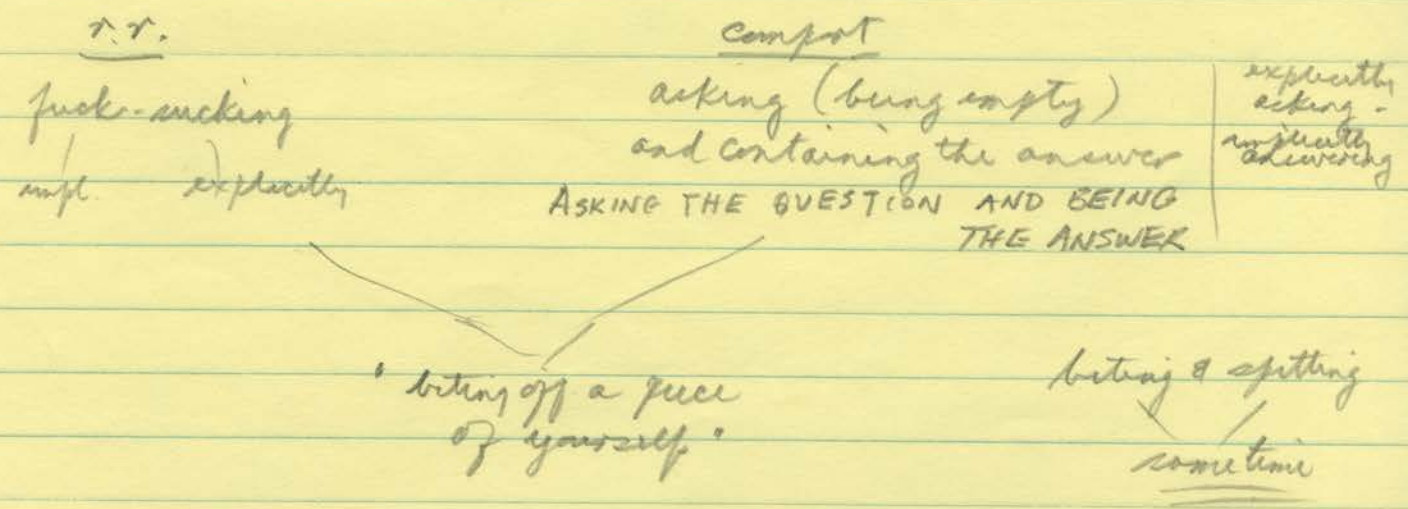 r.r.
fuck-sucking
impl. explicitly
compost
asking (being empty)
and containing the answer
ASKING THE QUESTION AND BEING
THE ANSWER
explicitly
asking -
implicitly
answering
"biting off a piece
of yourself"
biting & spitting
same time